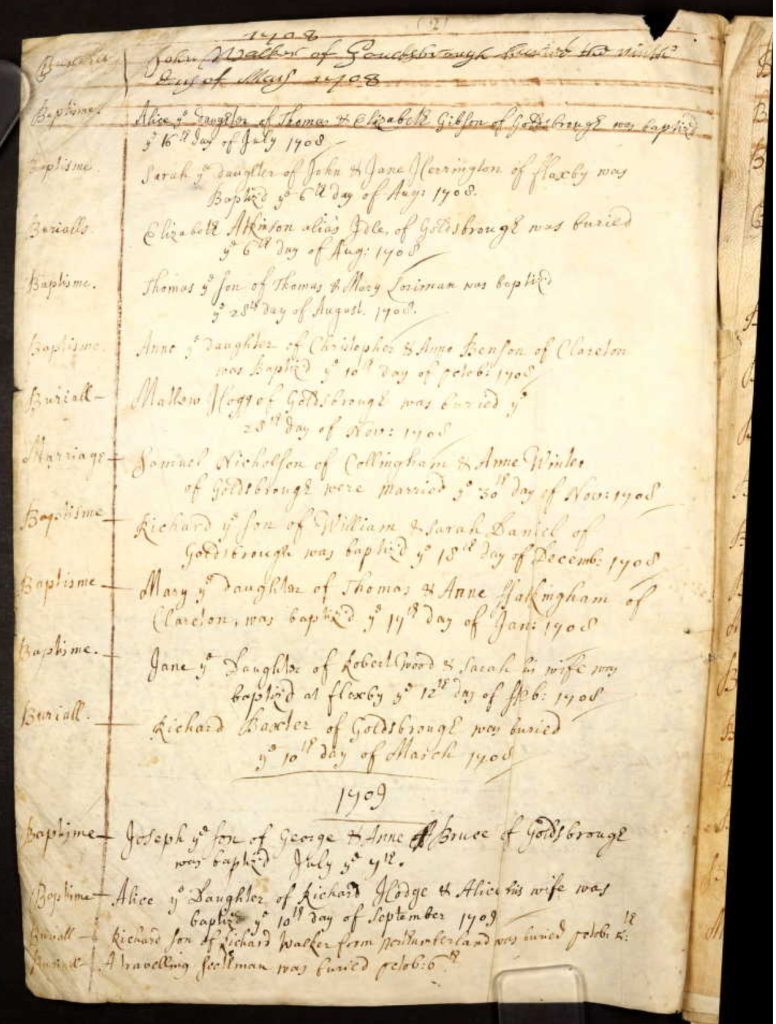 (2)
1708
Burialls John Walker of Gouldsbrough buried the ninth
day of May 1708
Baptisme. Alice ye daughter of Thomas & Elizabeth Gibson of Goldsbrough was baptizd
ye 16th day of July 1708
Baptisme Sarah ye daughter of John & Jane Herrington of flaxby was
Baptizd ye 6th day of Aug: 1708.
Burialls Elizabeth Atkinson alias Idle, of Goldsbrough was buried
ye 6th day of Aug: 1708
Baptisme. Thomas ye son of Thomas & Mary Loriman was baptizd
ye 28th day of August. 1708.
Baptisme Anne ye daughter of Christopher & Anne Benson of Clareton
was Baptizd ye 10th day of octob: 1708
Buriall Mathew Hogg of Goldsbrough was buried ye
28th day of Nov: 1708
Marriage Samuel Nicholson of Collingham & Anne Winter
of Goldsbrough were married ye 30th day of Nov: 1708
Baptisme Richard ye son of William & Sarah Daniel of
Goldsbrough was baptizd ye 18th day of Decemb: 1708
Baptisme Mary ye daughter of Thomas & Anne of
Clareton, was baptiz'd ye 17th day of Jan: 1708
Baptisme. Jane ye Daughter of Robert Wood & Sarah his wife was
baptizd at flaxby ye 12th day of ffeb: 1708
Buriall. Richard Baxter of Goldsbrough was buried
ye 10th day of March 1708
1709
Baptisme Joseph ye son of George & Anne Bruce of Goldsbrough
was baptizd July ye 7th.
Baptisme Alice ye Daughter of Richard Hodge & Alice his wife was
baptizd ye 10th day of September 1709
Buriall Richard son of Richard Walker from Northumberland was buried octob: 5th:
Buriall A travelling Scotsman was buried octob: 6th